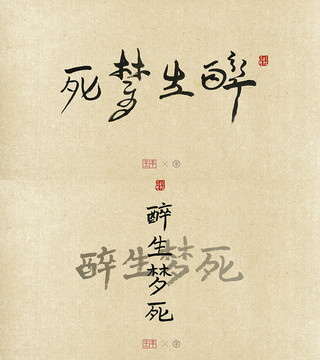 死夢生醉
醉生梦死
醉生梦死